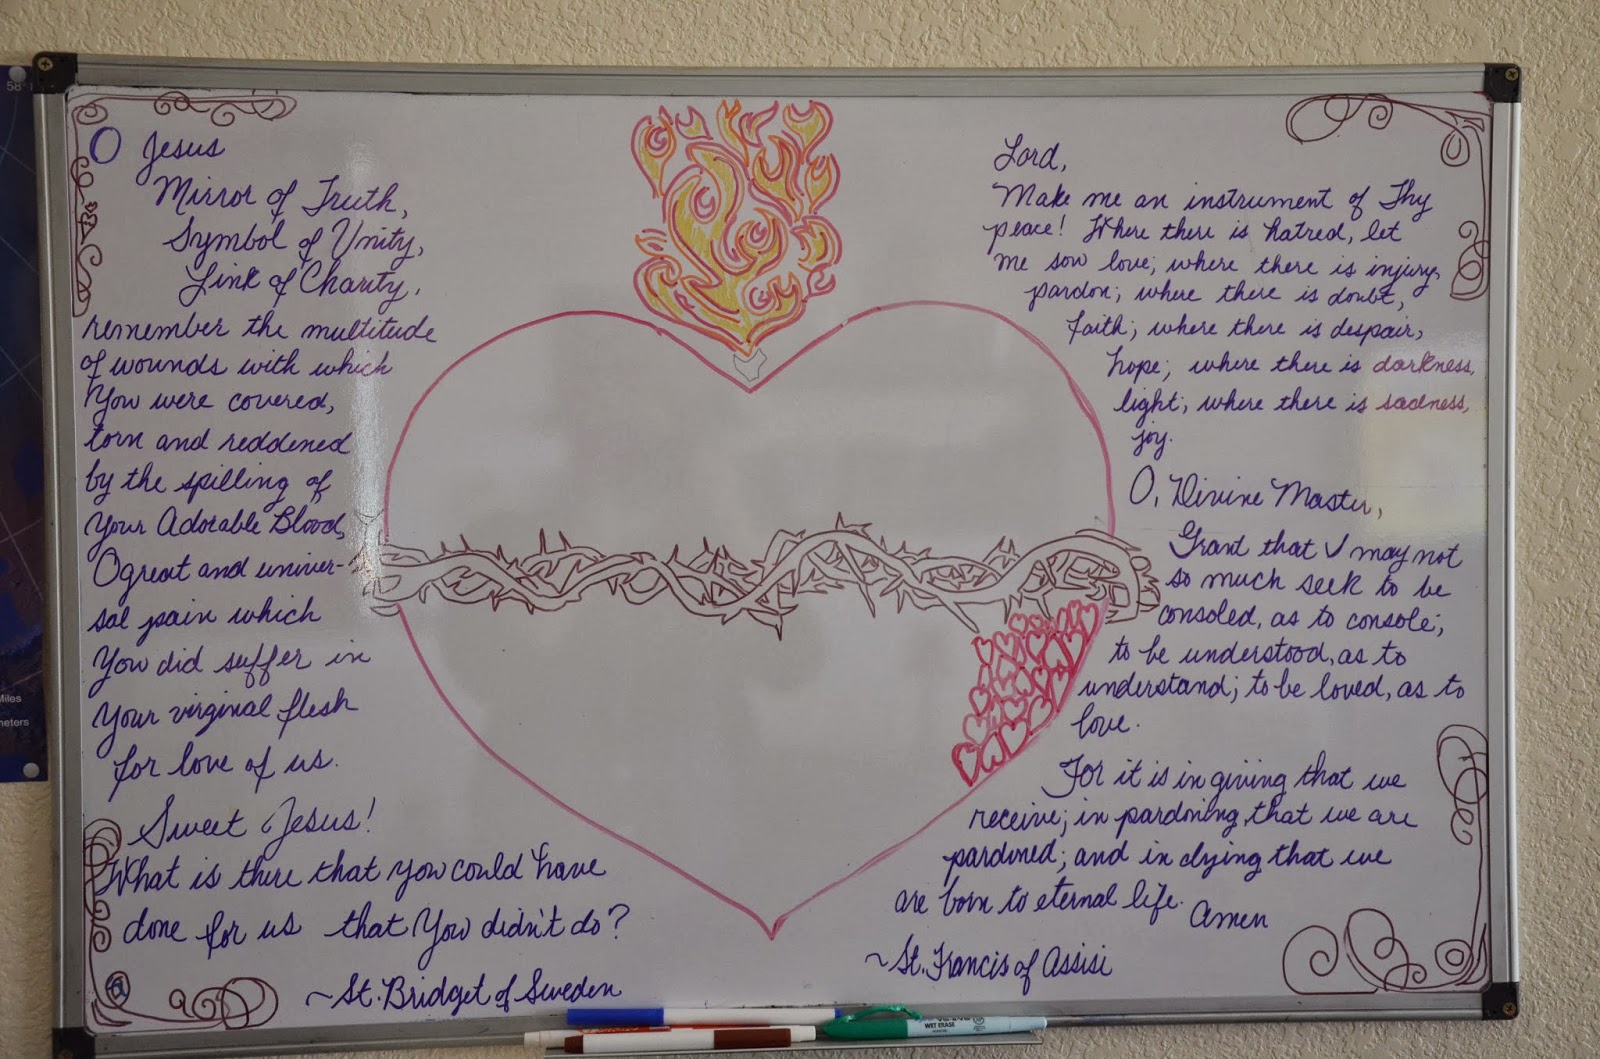 O Jesus
Mirror of Truth,
Symbol of Unity,
Link of Charity,
remember the multitude
of wounds with which
You were covered,
torn and reddened
by the spilling of
Your Adorable Blood,
O great and univer-
sal pain which
You did suffer in
Your virginal flesh
for love of us.
Sweet Jesus!
What is there that you could have
done for us that You didn't do?
~St. Bridget of Sweden
Lord,
Make me an instrument of Thy
peace! Where there is hatred, let
me sow love; where there is injury,
pardon; where there is doubt,
faith; where there is despair,
hope; where there is darkness,
light; where there is sadness,
joy.
O, Divine Master,
Grant that I may not
so much seek to be
consoled, as to console;
to be understood, as to
understand; to be loved, as to
love.
For it is in giving that we
receive; in pardoning, that we are
pardoned; and in dying that we
are born to eternal life.
Amen
~St. Francis of Assisi
58°
Miles
meters
WET ERASE